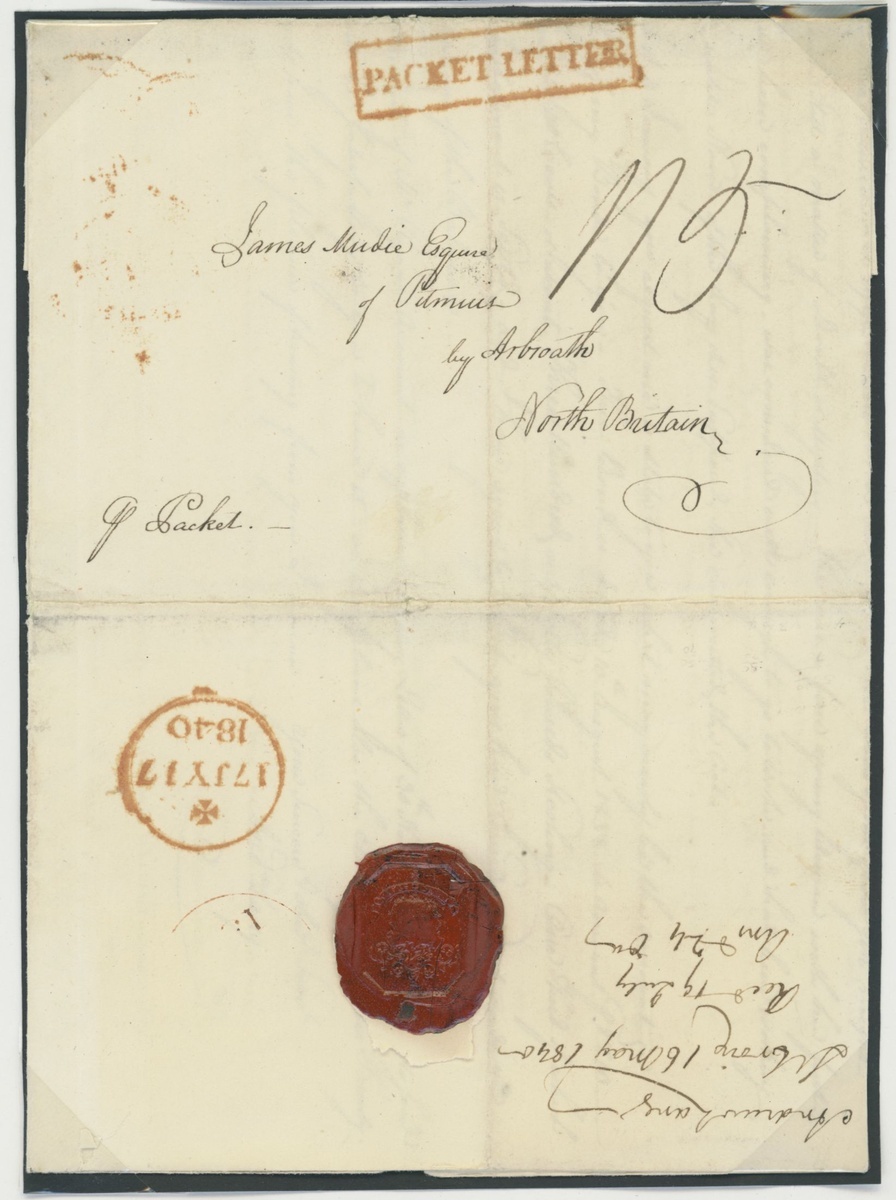 PACKET LETTER
N 5
James Mudie Esquire
of Pitmuies
by Arbroath
North Britain
P Packet. —
17 JY 17
1840
Andrew Lang
St Croix 16 May 1840
Recd 19 July
Ansd 24